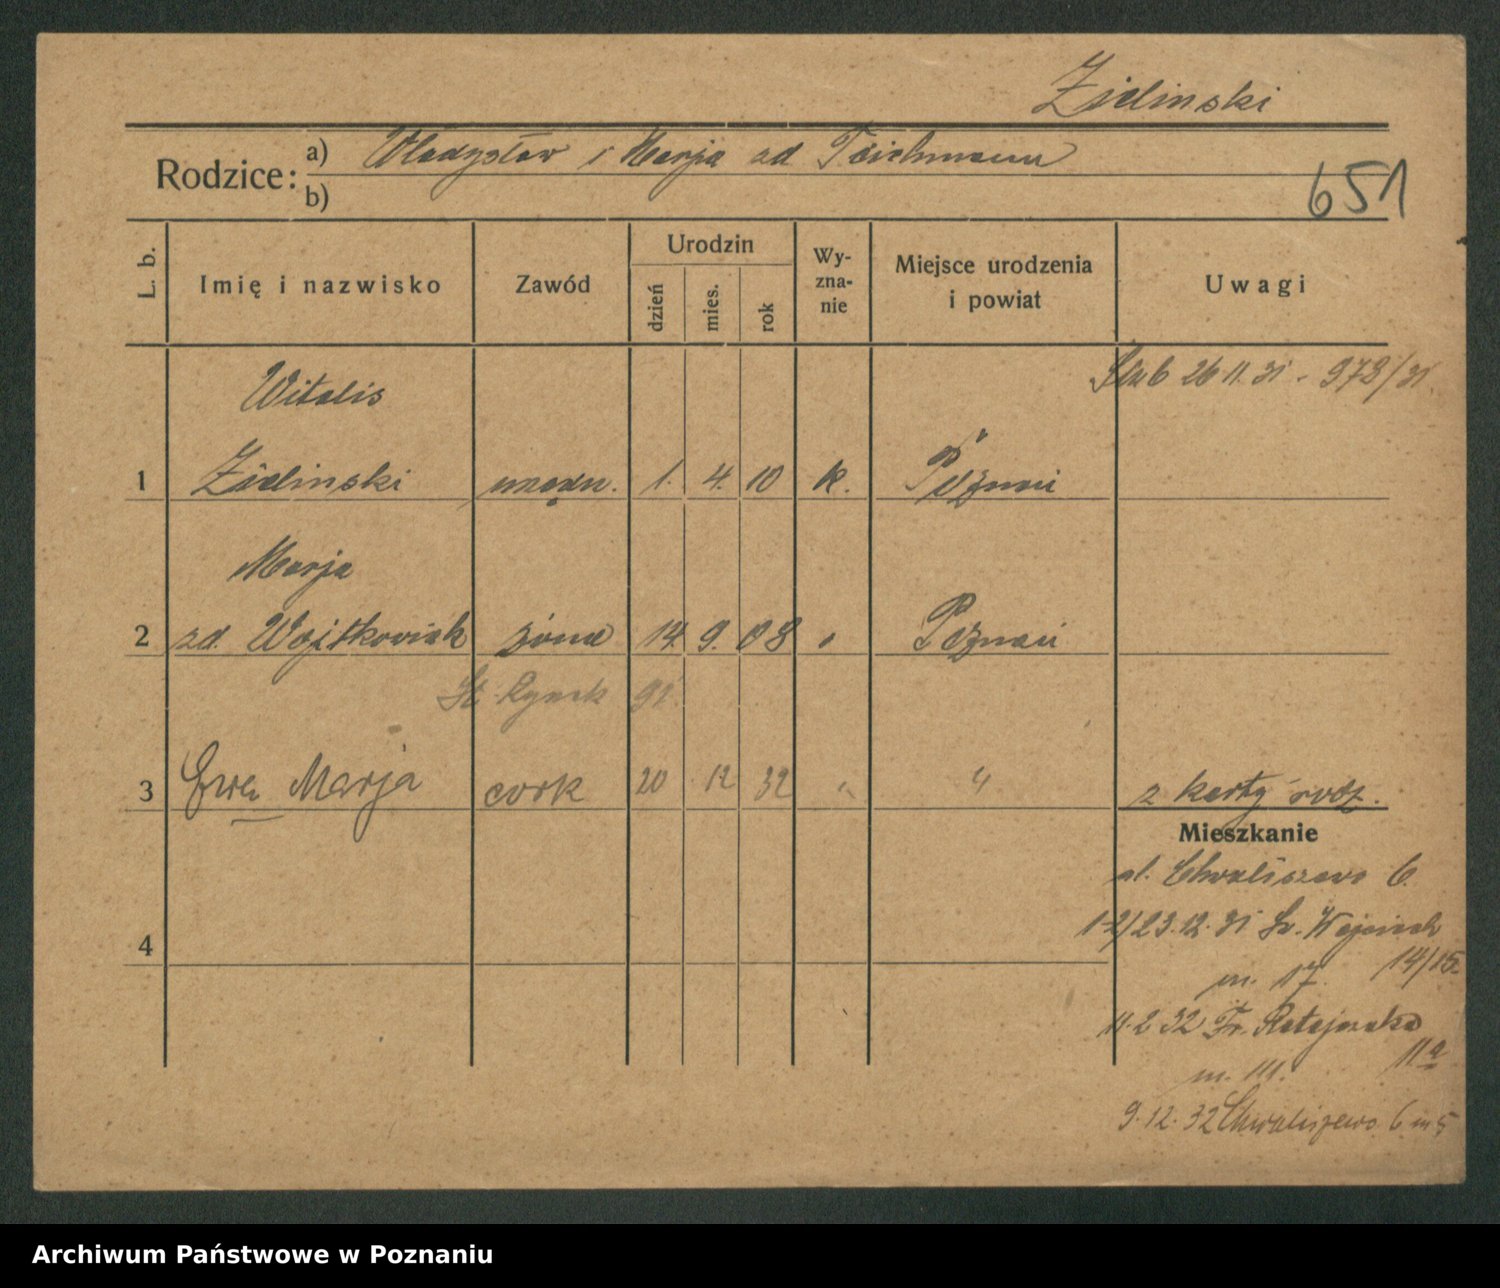 Zielinski
Rodzice:
a) Władysław i Marja od Teichmann
b)
651
L. b.
Imię i nazwisko
Zawód
Urodzin
dzień
mies.
rok
Wy-
zna-
nie
Miejsce urodzenia
i powiat
Uwagi
Ślub 26 11. 31 - 978/31
Witalis
1 Zielinski urzędn. 1. 4. 10 k. Poznań
Marja
2 zd. Wojtkowiak żona 14 9. 08 " Poznań
St. Rynek 91
3 Ewa Marja cork 20 12 32 " " z karty rodz.
Mieszkanie
ul. Chwaliszewo 6.
1-2/23.12.31 Św. Wojciech
14/15
m. 17.
4
11.2 32 Fr. Ratajczaka
11a
m. 111.
9.12.32 Chwaliszewo 6 m 5
Archiwum Państwowe w Poznaniu